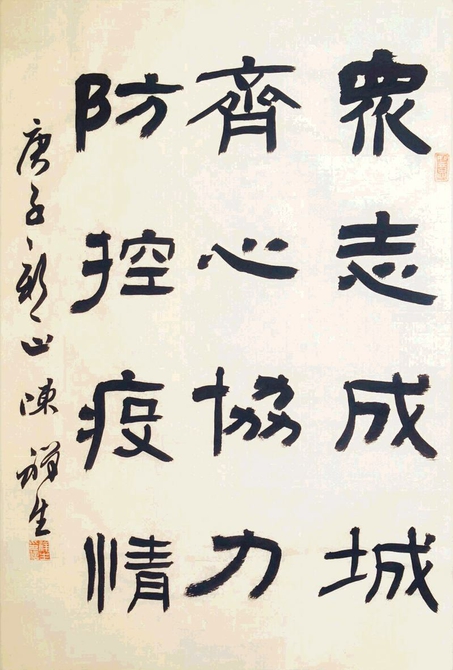 眾志成城
齊心協力
防控疫情
庚子新正陳祥生